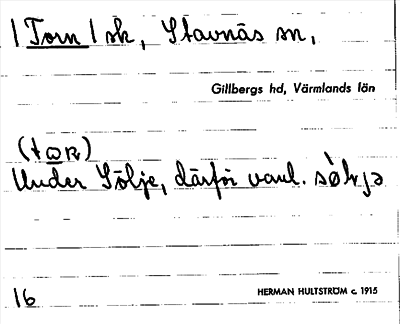 | Torn | sk, Stavnäs sn,
Gillbergs hd, Värmlands län
(tɷʀ)
Under Sölje, därför vanl. sø̀lıjə
16
HERMAN HULTSTRÖM c. 1915